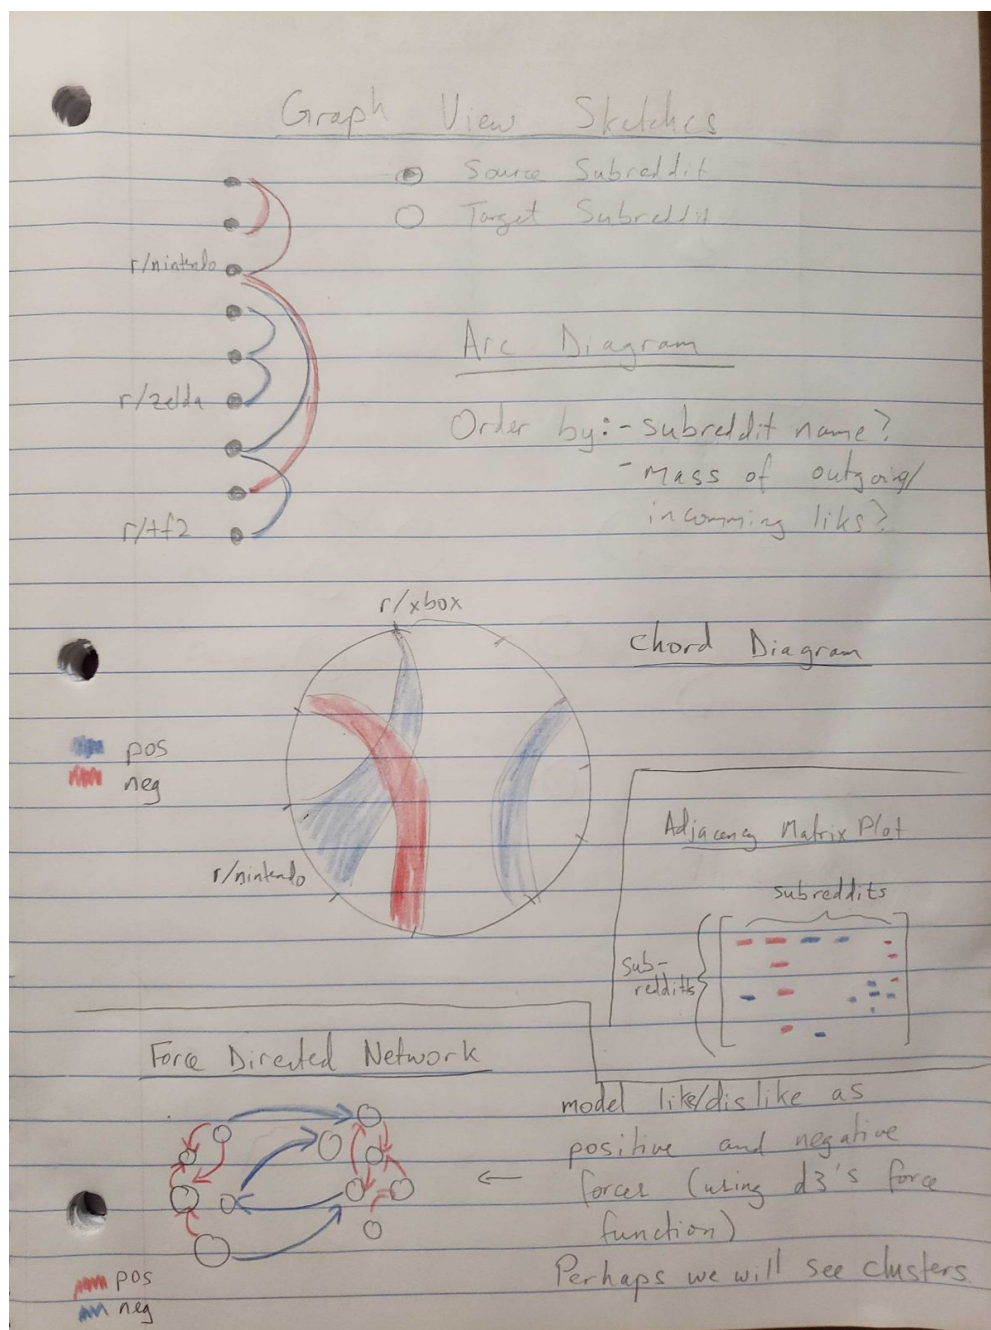 Graph View Sketches
Source Subreddit
Target Subreddit
r/nintendo
r/zelda
r/tf2
Arc Diagram
Order by: - subreddit name?
- mass of outgoing/
incomming liks?
r/xbox
Chord Diagram
pos
neg
r/nintendo
Adjacency Matrix Plot
subreddits
sub-
reddits
Force Directed Network
model like/dislike as
positive and negative
← forces (using d3's force
function)
Perhaps we will see clusters.
pos
neg